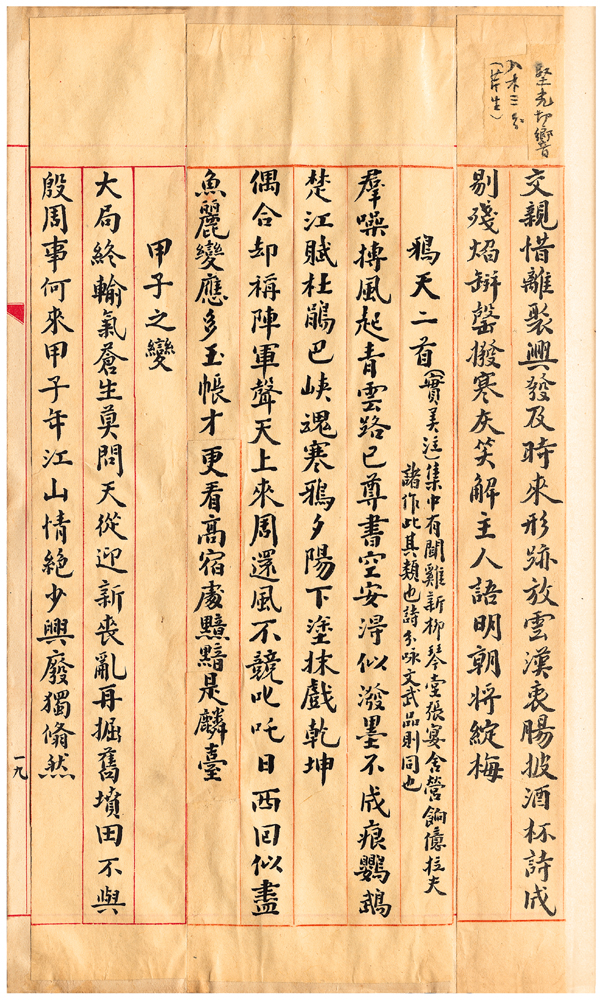 堅光切響
入木三分
（芹生）
交親惜離聚興發及時來形跡放雲漢衷腸披酒杯詩成
剔殘焰缾罄撥寒灰笑解主人語明朝將綻梅
鴉天二首（實美注）集中有聞雞新柳琴臺張宴舍營餉億拉夫
諸作此其類也詩分咏文武品則同也
羣噪搏風起青雲路已尊書空安得似潑墨不成痕鸚鵡
楚江賦杜鵑巴峽魂寒鴉夕陽下塗抹戲乾坤
偶合却稱陣軍聲天上來周還風不競叱吒日西回似盡
魚麗變應多玉帳才更看高宿處黯黯是麟臺
甲子之變
大局終輸氣蒼生莫問天從迎新喪亂再掘舊墳田不與
殷周事何來甲子年江山情絶少興廢獨翛然
一九